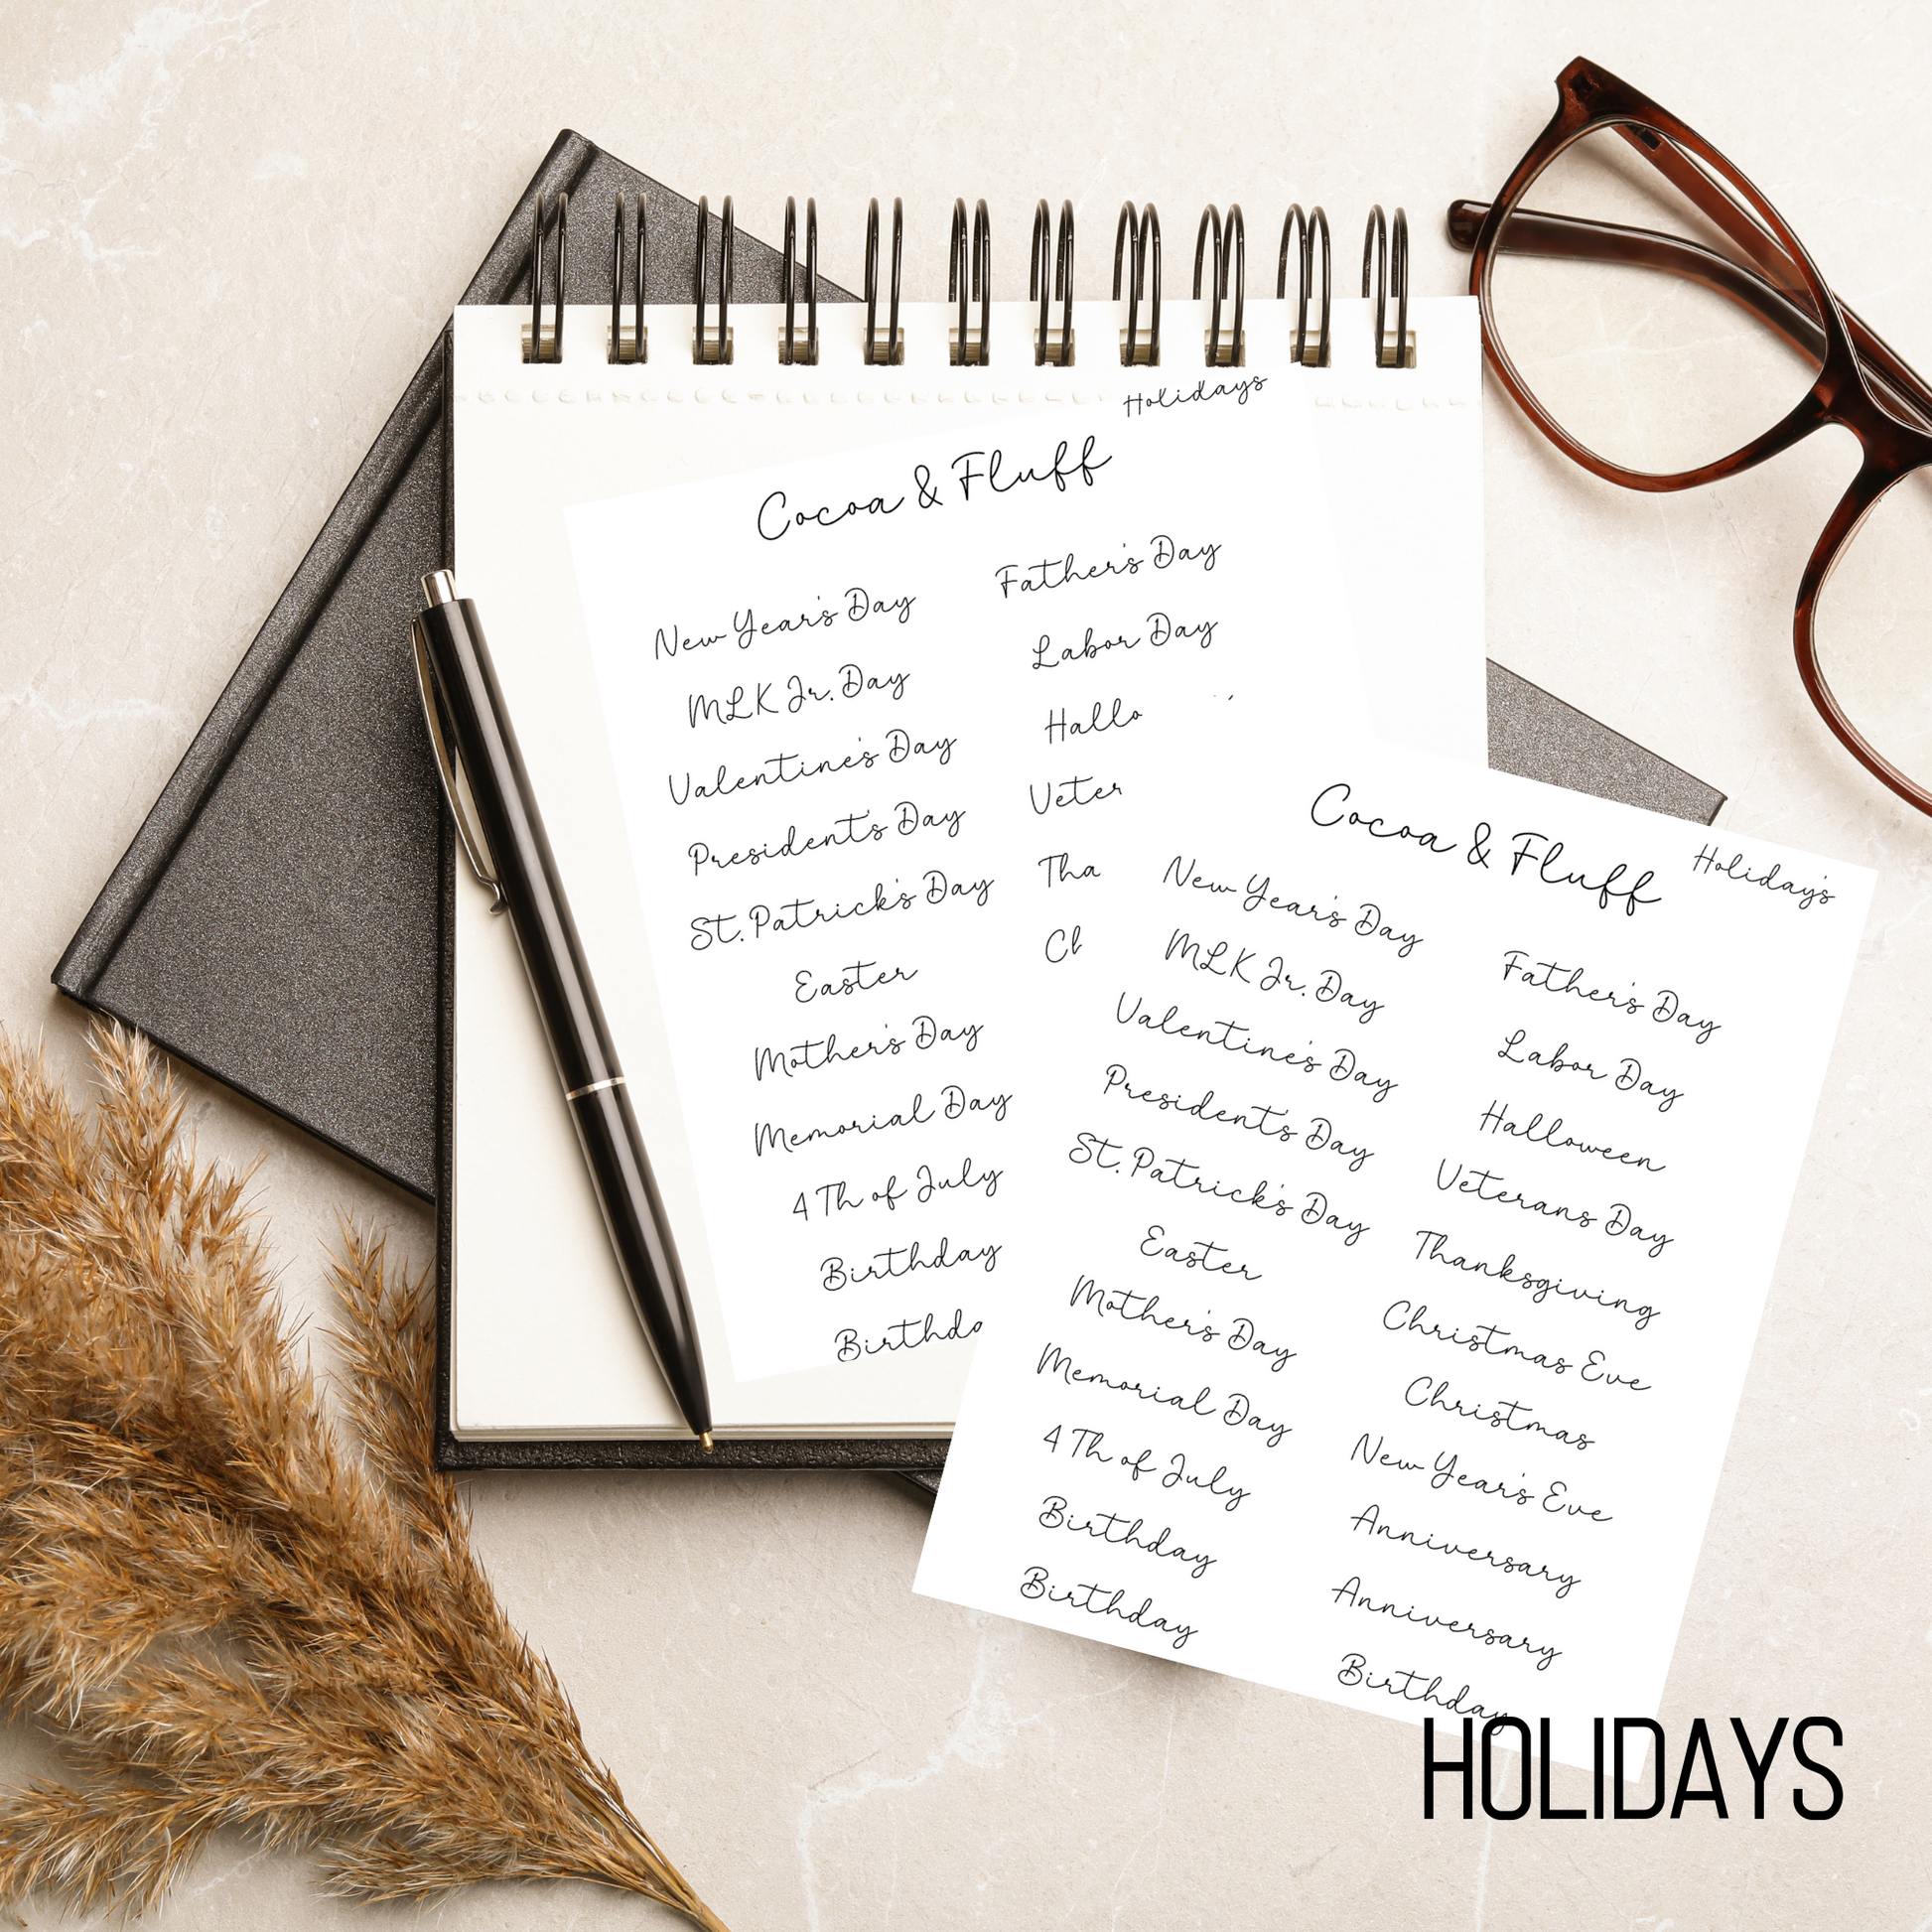 Holidays
Cocoa & Fluff
New Year's Day
MLK Jr. Day
Valentine's Day
President's Day
St. Patrick's Day
Easter
Mother's Day
Memorial Day
4 Th of July
Birthday
Birthda
Father's Day
Labor Day
Hallo
Veter
Tha
Ch
Cocoa & Fluff
Holiday's
New Year's Day
MLK Jr. Day
Valentine's Day
President's Day
St. Patrick's Day
Easter
Mother's Day
Memorial Day
4 Th of July
Birthday
Birthday
Father's Day
Labor Day
Halloween
Veterans Day
Thanksgiving
Christmas Eve
Christmas
New Year's Eve
Anniversary
Anniversary
Birthday
HOLIDAYS